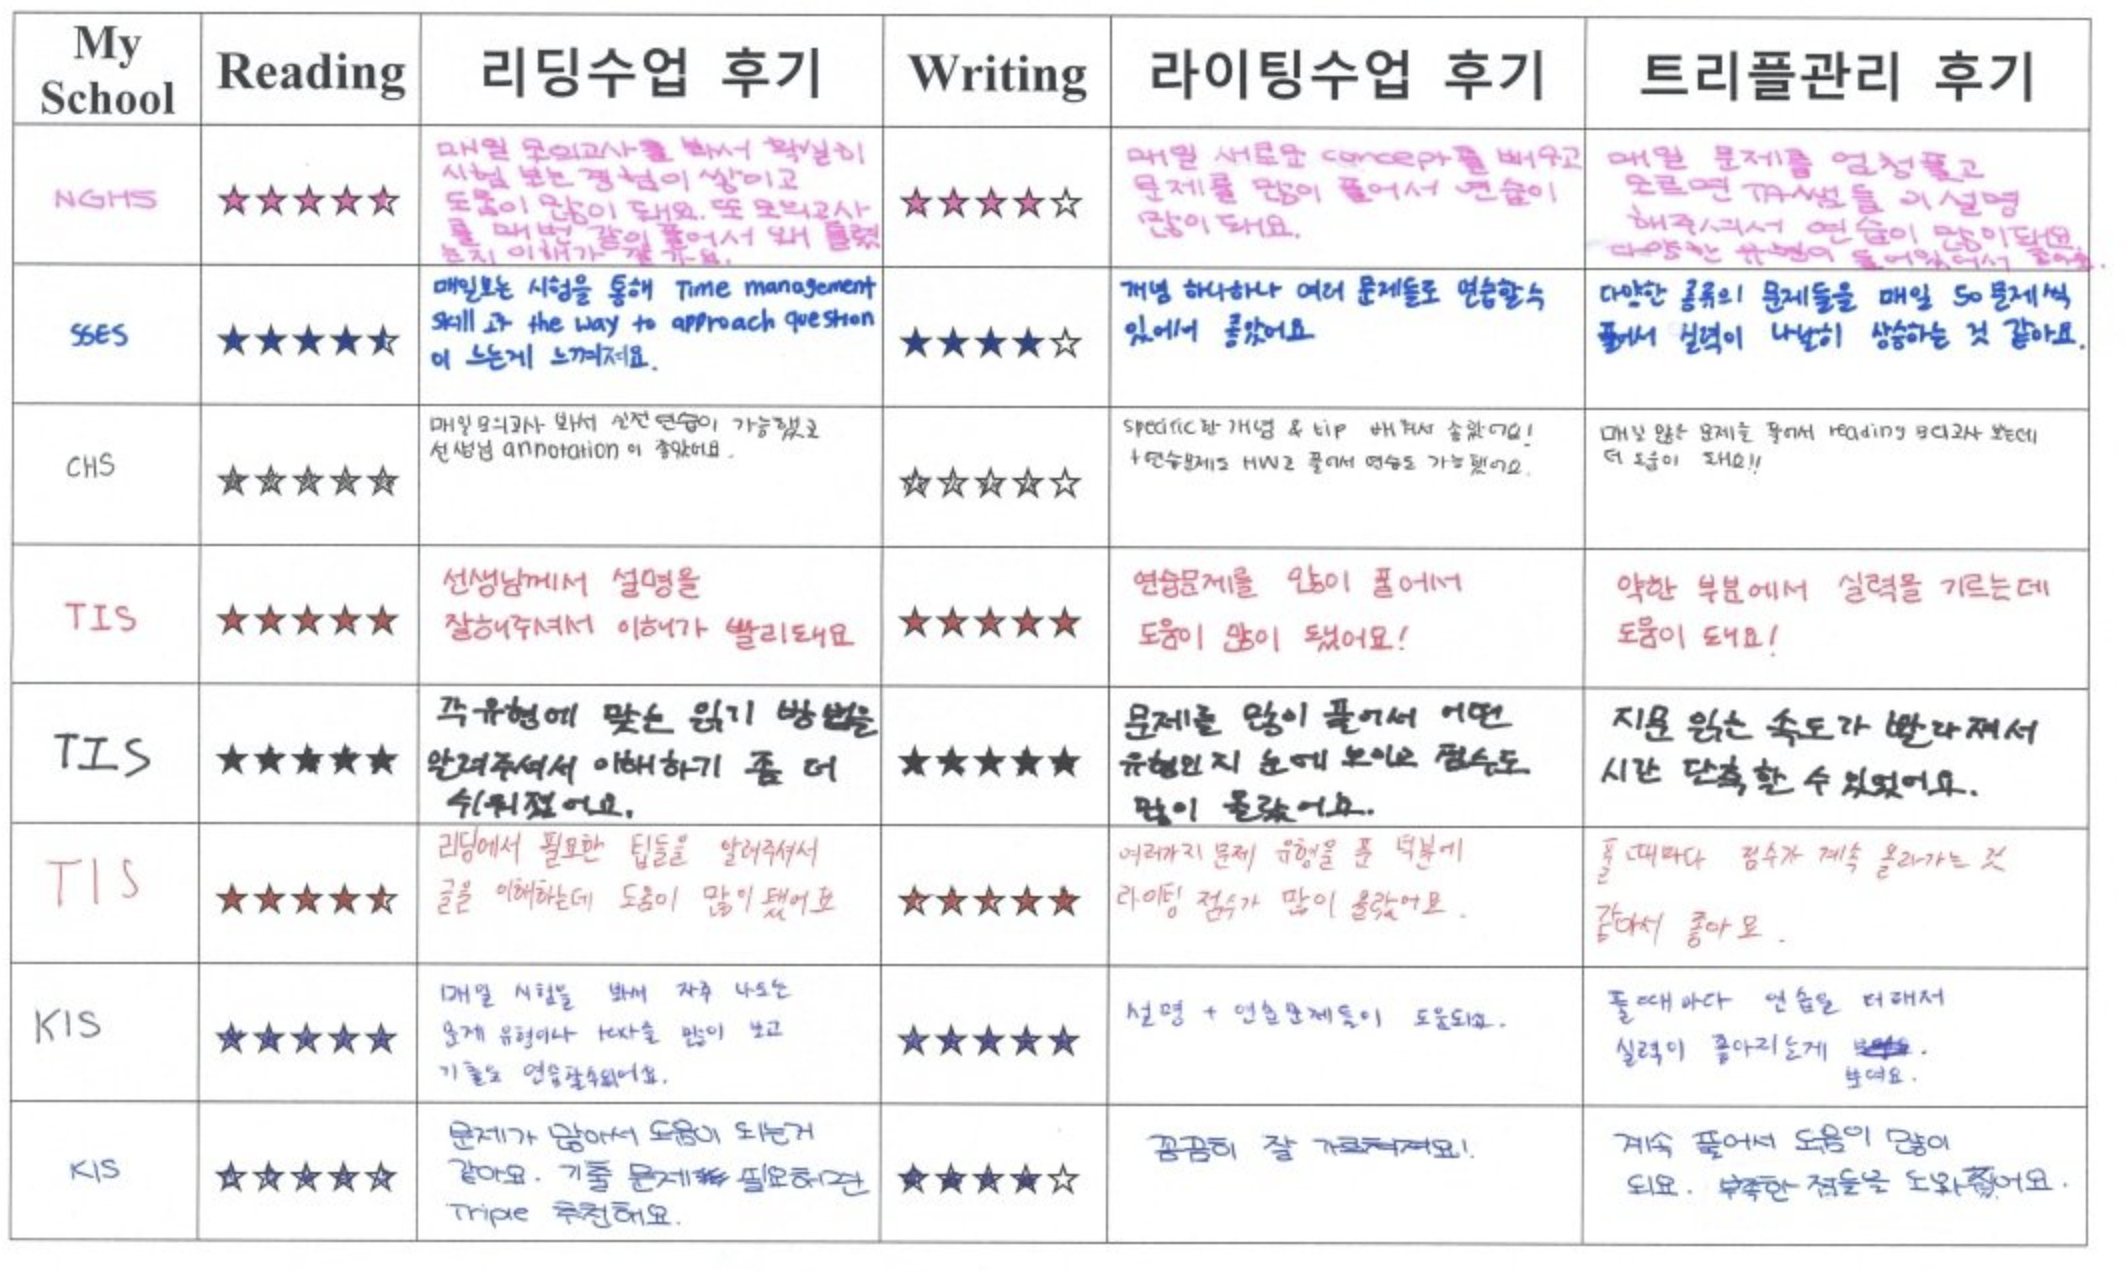 My School
Reading
리딩수업 후기
Writing
라이팅수업 후기
트리플관리 후기
NGHS
매일 모의고사를 봐서 확실히
시험 보는 경험이 쌓이고
도움이 많이 돼요. 또 모의고사
를 매번 같이 풀어서 왜 틀렸
는지 이해가 잘 가요.
매일 새로운 concept를 배우고
문제를 많이 풀어서 연습이
많이 돼요.
매일 문제를 엄청 풀고
모르면 TA쌤들이 설명
해주셔서 연습이 많이 돼요.
다양한 유형이 들어있어서 좋아요.
SSES
매일보는 시험을 통해 Time management
skill 과 the way to approach question
이 느는게 느껴져요.
개념 하나하나 여러 문제들로 연습할 수
있어서 좋았어요
다양한 종류의 문제들을 매일 50문제씩
풀어서 실력이 나날히 상승하는 것 같아요.
CHS
매일 모의고사 봐서 실전 연습이 가능했고
선생님 annotation 이 좋았어요.
specific한 개념 & tip 배워서 좋았어요!
+연습문제도 HW로 풀어서 연습도 가능했어요.
매일 많은 문제를 풀어서 reading 모의고사 보는데
더 도움이 돼요!!
TIS
선생님께서 설명을
잘해주셔서 이해가 빨리돼요
연습문제를 많이 풀어서
도움이 많이 됐어요!
약한 부분에서 실력을 기르는데
도움이 돼요!
TIS
각 유형에 맞는 읽기 방법을
알려주셔서 이해하기 좀 더
쉬워졌어요.
문제를 많이 풀어서 어떤
유형인지 눈에 보이고 점수도
많이 올랐어요.
지문 읽는 속도가 빨라져서
시간 단축할 수 있었어요.
TIS
리딩에서 필요한 팁들을 알려주셔서
글을 이해하는데 도움이 많이 됐어요
여러가지 문제 유형을 푼 덕분에
라이팅 점수가 많이 올랐어요.
풀 때마다 점수가 계속 올라가는 것
같아서 좋아요.
KIS
매일 시험을 봐서 자주 나오는
문제 유형이나 많이 보고
기출도 연습할수있어요.
설명 + 연습문제들이 도움되요.
풀때마다 연습을 더해서
실력이 좋아지는게
보여요.
KIS
문제가 많아서 도움이 되는거
같아요. 기출 문제 필요하면
Triple 추천해요.
꼼꼼히 잘 가르쳐져요!
계속 풀어서 도움이 많이
되요. 부족한 점들을 도와줬어요.